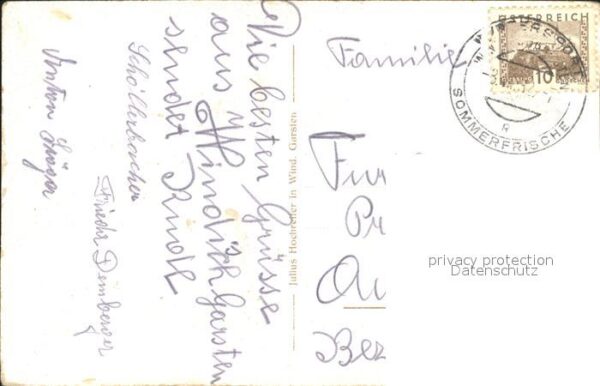 Die besten Grüsse
aus Windischgarsten
sendet Rudl
Schöllerbacher
Friedr Deimberger
Anton
Julius Hochreiter in Wind. Garsten
Familie
Fur
Pr
Bez
ÖSTERREICH
10
SOMMERFRISCHE
privacy protection
Datenschutz